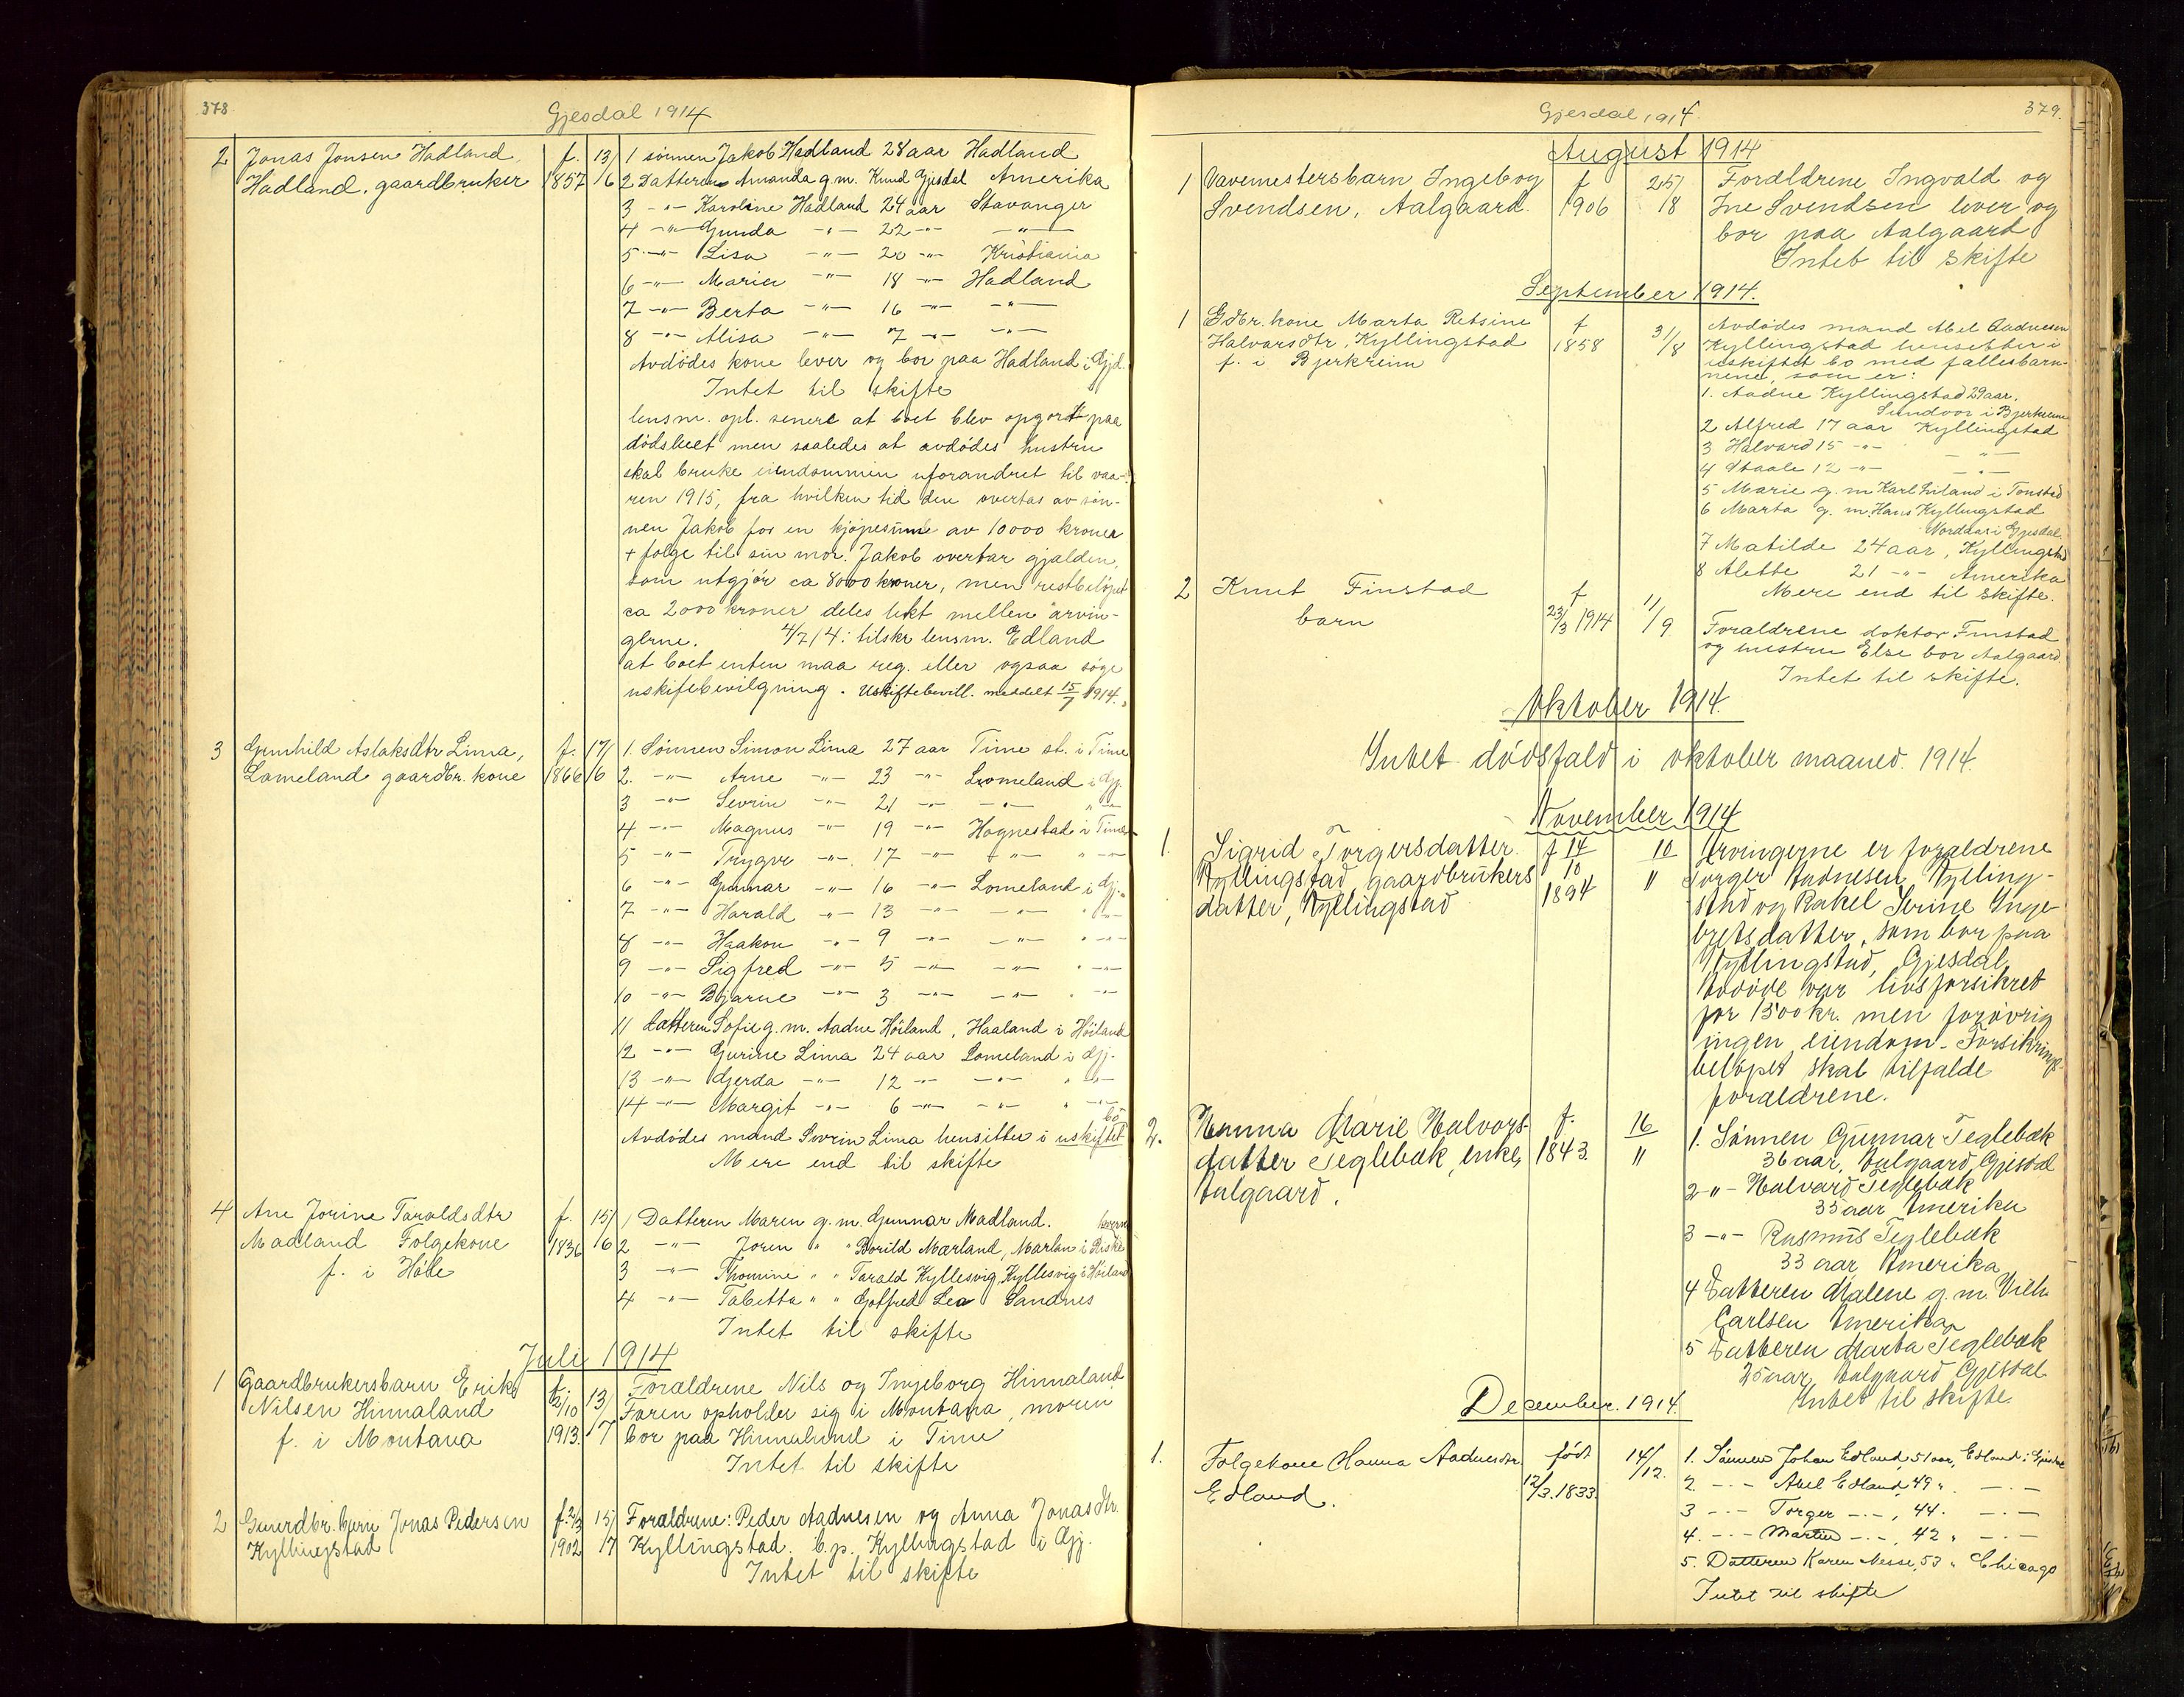 378.
Gjesdal 1914
2 Jonas Jonsen Hadland, f. 13/ 1 sønnen Jakob Hadland 28 aar Hadland
Hadland, gaardbruker 1857 6 2 Datteren Amanda g.m. Knud Gjesdal Amerika
3 -"- Karoline Hadland 24 aar Stavanger
4 -"- Gunda -"- 22 -"- -"-
5 -"- Lisa -"- 20 -"- Kristiania
6 -"- Maria -"- 18 -"- Hadland
7 -"- Berta -"- 16 -"- -"-
8 -"- Alisa -"- 7 -"- -"-
Avdødes kone lever og bor paa Hadland i Gjd.
Intet til skifte
lensm. opl. senere at boet blev opgort paa
dødsleiet men saaledes at avdødes hustru
skal bruke eiendommen uforandret til vaa-
ren 1915, fra hvilken tid den overtas av søn-
nen Jakob for en kjøpesum av 10000 kroner
+ følge til sin mor. Jakob overtar gjælden,
som utgjør ca 8000 kroner, men restbeløpet
ca 2000 kroner deles likt mellem arvin-
gerne. 4/7 14: tilskr lensm. Edland
at boet enten maa reg. eller ogsaa søge
uskiftebevilgning. Uskiftebevill. meddelt 15/7 1914.
3 Gunhild Aslaksdtr Lima, f. 17/ 1. Sønnen Simon Lima 27 aar Time st. i Time
Lomeland gaardbr. kone 1866 6 2. -"- Arne -"- 23 -"- Lomeland i Gj.
3 -"- Sevrin -"- 21 -"- -"- " -"-
4 -"- Magnus -"- 19 -"- Hognestad i Time
5 -"- Trygve -"- 17 -"- -"- " -"-
6 -"- Gunnar -"- 16 -"- Lomeland i Gj.
7 -"- Harald -"- 13 -"- -"- " -"-
8 -"- Haakon -"- 9 -"- -"- " -"-
9 -"- Sigfred -"- 5 -"- -"- " -"-
10 -"- Bjarne -"- 3 -"- -"- " -"-
11 datteren Sofie g.m. Aadne Høiland, Haaland i Høiland
12 -"- Gurine Lima 24 aar Lomeland i Gj.
13 -"- Gjerda -"- 12 -"- -"- " -"-
14 -"- Margit -"- 6 -"- -"- " -"-
Avdødes mand Sevrin Lima hensitter i uskiftet bo
Mere end til skifte
4 Ane Jorine Taraldsdtr f. 15/ 1 Datteren Maren g.m. Gunnar Madland.
Madland Folgekone 1836 6 2 -"- Joren " " Borild Mærland, Marlan i
f. i Høle 3 -"- Thomine " " Tarald Kyllesvig, Kyllesvig i Høiland
4 -"- Tabitta " " Gotfred Lea Sandnes
Intet til skifte
Juli 1914
1 Gaardbrukersbarn Erik f. 13/ Forældrene Nils og Ingeborg Hinnaland
Nilsen Hinnaland 2/10 Faren opholder sig i Montana, moren
f. i Montana 1913. 7 bor paa Hinnaland i Time
Intet til skifte
2 Gaardbr. barn Jonas Pedersen f. 2/3 15/ Forældrene: Peder Aadnesen og Anna Jonasdtr.
Kyllingstad 1902 7 Kyllingstad. b.p. Kyllingstad i Gj.
Intet til skifte
379.
Gjesdal 1914.
August 1914
1 Vævemestersbarn Ingebog f 25/ Forældrene Ingvald og
Svendsen, Aalgaard. 1906 8 Ine Svendsen lever og
bor paa Aalgaard
Intet til skifte
September 1914.
1 Gdbr. kone Marta Retsine f 31/8 Avdødes mand Abel Aadnesen
Halvarsdtr, Kyllingstad 1858 Kyllingstad hensitter i
f. i Bjerkreim uskiftet bo med fællesbarn-
nene, som er:
1. Aadne Kyllingstad 29 aar,
Sundvor i Bjerkreim
2 Alfred 17 aar Kyllingstad
3 Halvard 15 -"- -"-
4 Staale 12 -"- -"-
5 Marie g.m Karl Eiland i Tonstad
6 Marta g.m. Hans Kyllingstad
Nordaas i Gjesdal.
7 Matilde 24 aar, Kyllingstad
8 Alette 21 -"- Amerika
Mere end til skifte.
2 Knut Finstad f 11/9
barn 23/3 1914 Forældrene doktor Finstad
og hustru Else bor Aalgaard.
Intet til skifte.
Oktober 1914.
Intet dødsfald i oktober maaned. 1914.
November 1914
1. Sigrid Torgersdatter f 14 10 Arvingerne er forældrene
Kyllingstad gaardbrukers 10 11 Torger Aadnesen Kylling-
datter, Kyllingstad 1894 stad og Rakel Serine Inge-
bretsdatter, som bor paa
Kyllingstad, Gjesdal.
Avdøde var livsforsikret
for 1500 kr. men forøvrig
ingen eiendom. Forsikrings-
beløpet skal tilfalde
forældrene.
2. Hanna Marie Halvors- f. 16 1. Sønnen Gunnar Teglebæk
datter Teglebæk, enke, 1843. 11 36 aar, Aalgaard, Gjesdal
Aalgaard. 2 -"- Halvard Teglebæk
35 aar Amerika
3 -"- Rasmus Teglebæk
33 aar Amerika
4 Datteren Malene g.m. Vilh.
Carlsen Amerika
5 Datteren Marta Teglebæk
25 aar, Aalgaard Gjesdal
Intet til skifte.
December. 1914.
1. Følgekone Hanna Aadnesdtr. født 14/12. 1. Sønnen Johan Edland, 51 aar, Edland i Gjesdal
Edland. 12/3.1833. 2. -"- Abel Edland, 49 " -"-
3 -"- Torger -"-, 44. -"-
4. -"- Martin -"-, 42 " -"-
5. Datteren Karen Nesse, 53 " Chicago
Intet til skifte